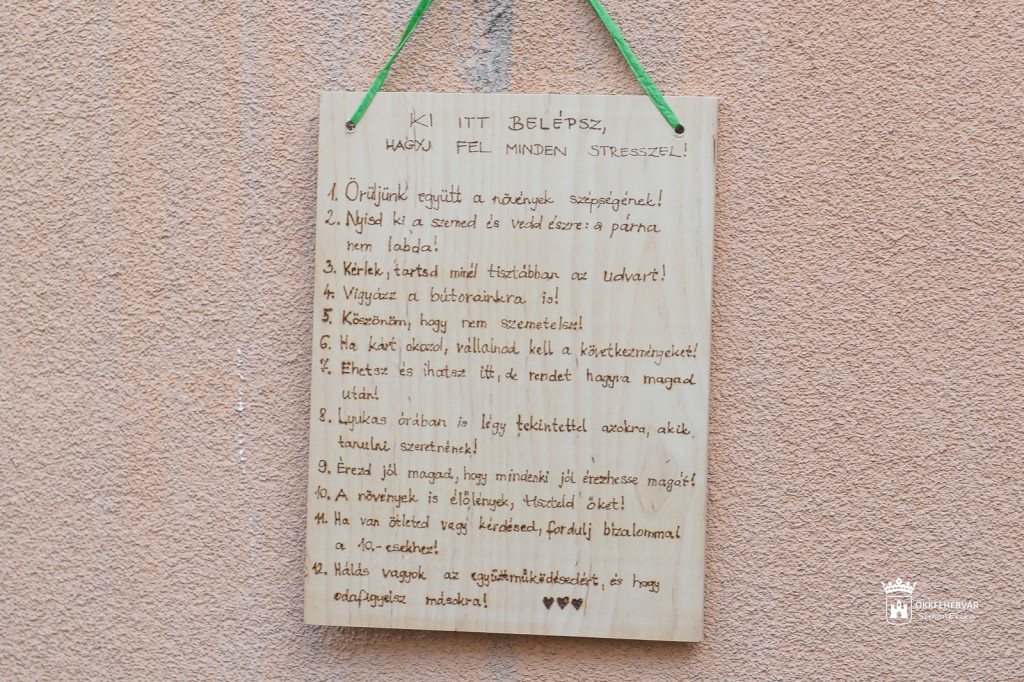 KI ITT BELÉPSZ,
HAGYJ FEL MINDEN STRESSZEL!
1. Örüljünk együtt a növények szépségének!
2. Nyisd ki a szemed és vedd észre: a párna
nem labda!
3. Kérlek, tartsd minél tisztábban az udvart!
4. Vigyázz a bútorainkra is!
5. Köszönöm, hogy nem szemetelsz!
6. Ha kárt okozol, vállalnod kell a következményeket!
7. Ehetsz és ihatsz itt, de rendet hagyva magad
után!
8. Lyukas órában is légy tekintettel azokra, akik
tanulni szeretnének!
9. Érezd jól magad, hogy mindenki jól érezhesse magát!
10. A növények is élőlények, tiszteld őket!
11. Ha van ötleted vagy kérdésed, fordulj bizalommal
a 10.-esekhez!
12. Hálás vagyok az együttműködésedért, és hogy
odafigyelsz másokra!
ÖKKFEHÉRVÁR